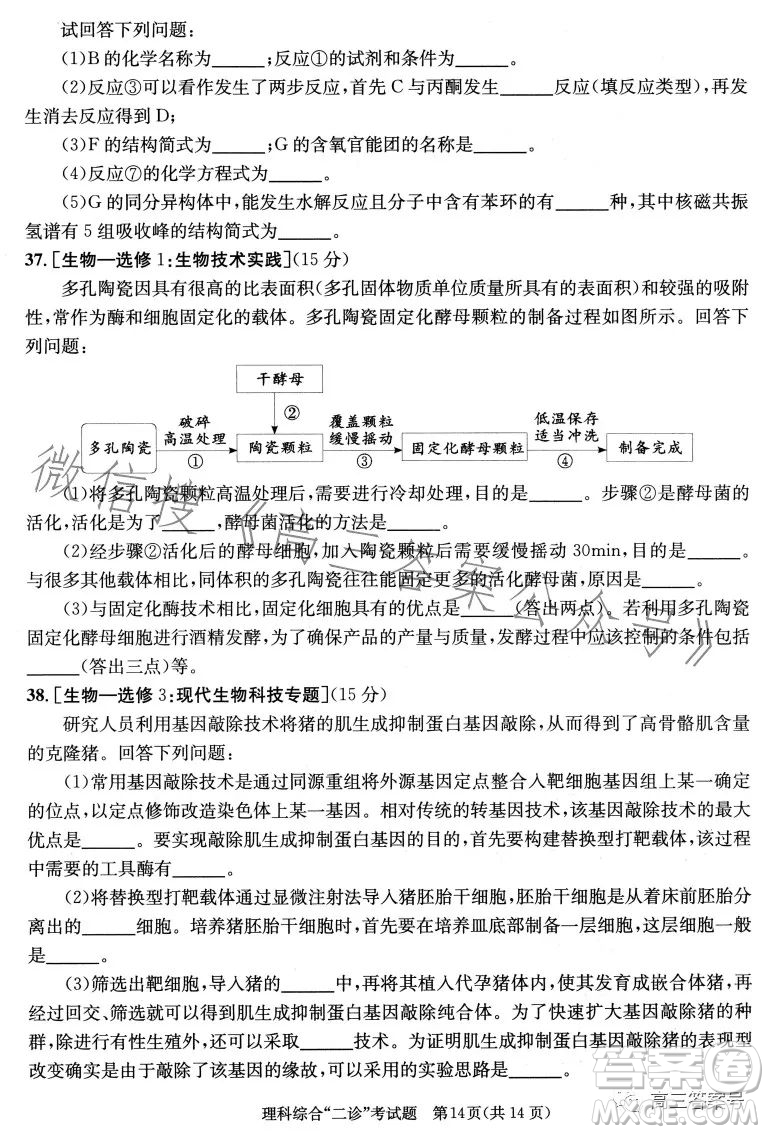 试回答下列问题:
(1)B的化学名称为______;反应①的试剂和条件为______。
(2)反应③可以看作发生了两步反应,首先C与丙酮发生______反应(填反应类型),再发
生消去反应得到D;
(3)F的结构简式为______;G的含氧官能团的名称是______。
(4)反应⑦的化学方程式为______。
(5)G的同分异构体中,能发生水解反应且分子中含有苯环的有______种,其中核磁共振
氢谱有5组吸收峰的结构简式为______。
37.[生物—选修1:生物技术实践](15分)
多孔陶瓷因具有很高的比表面积(多孔固体物质单位质量所具有的表面积)和较强的吸附
性,常作为酶和细胞固定化的载体。多孔陶瓷固定化酵母颗粒的制备过程如图所示。回答下
列问题:
干酵母
②
多孔陶瓷
破碎
高温处理
①
陶瓷颗粒
覆盖颗粒
缓慢摇动
③
固定化酵母颗粒
低温保存
适当冲洗
④
制备完成
(1)将多孔陶瓷颗粒高温处理后,需要进行冷却处理,目的是______。步骤②是酵母菌的
活化,活化是为了______,酵母菌活化的方法是______。
(2)经步骤②活化后的酵母细胞,加入陶瓷颗粒后需要缓慢摇动30min,目的是______。
与很多其他载体相比,同体积的多孔陶瓷往往能固定更多的活化酵母菌,原因是______。
(3)与固定化酶技术相比,固定化细胞具有的优点是______(答出两点)。若利用多孔陶瓷
固定化酵母细胞进行酒精发酵,为了确保产品的产量与质量,发酵过程中应该控制的条件包括
______(答出三点)等。
38.[生物—选修3:现代生物科技专题](15分)
研究人员利用基因敲除技术将猪的肌生成抑制蛋白基因敲除,从而得到了高骨骼肌含量
的克隆猪。回答下列问题:
(1)常用基因敲除技术是通过同源重组将外源基因定点整合入靶细胞基因组上某一确定
的位点,以定点修饰改造染色体上某一基因。相对传统的转基因技术,该基因敲除技术的最大
优点是______。要实现敲除肌生成抑制蛋白基因的目的,首先要构建替换型打靶载体,该过程
中需要的工具酶有______。
(2)将替换型打靶载体通过显微注射法导入猪胚胎干细胞,胚胎干细胞是从着床前胚胎分
离出的______细胞。培养猪胚胎干细胞时,首先要在培养皿底部制备一层细胞,这层细胞一般
是______。
(3)筛选出靶细胞,导入猪的______中,再将其植入代孕猪体内,使其发育成嵌合体猪,再
经过回交、筛选得到肌生成抑制蛋白基因敲除纯合体。为了快速扩大基因敲除猪的种
群,除进行有性生殖外,还可采取______技术。为证明肌生成抑制蛋白基因敲除猪的表现型
改变确实是由于敲除了该基因的缘故,可以采用的实验思路是______。
理科综合“二诊”考试题 第14页(共14页)
微信搜《高三答案公众号》
答案圈
高三答案号